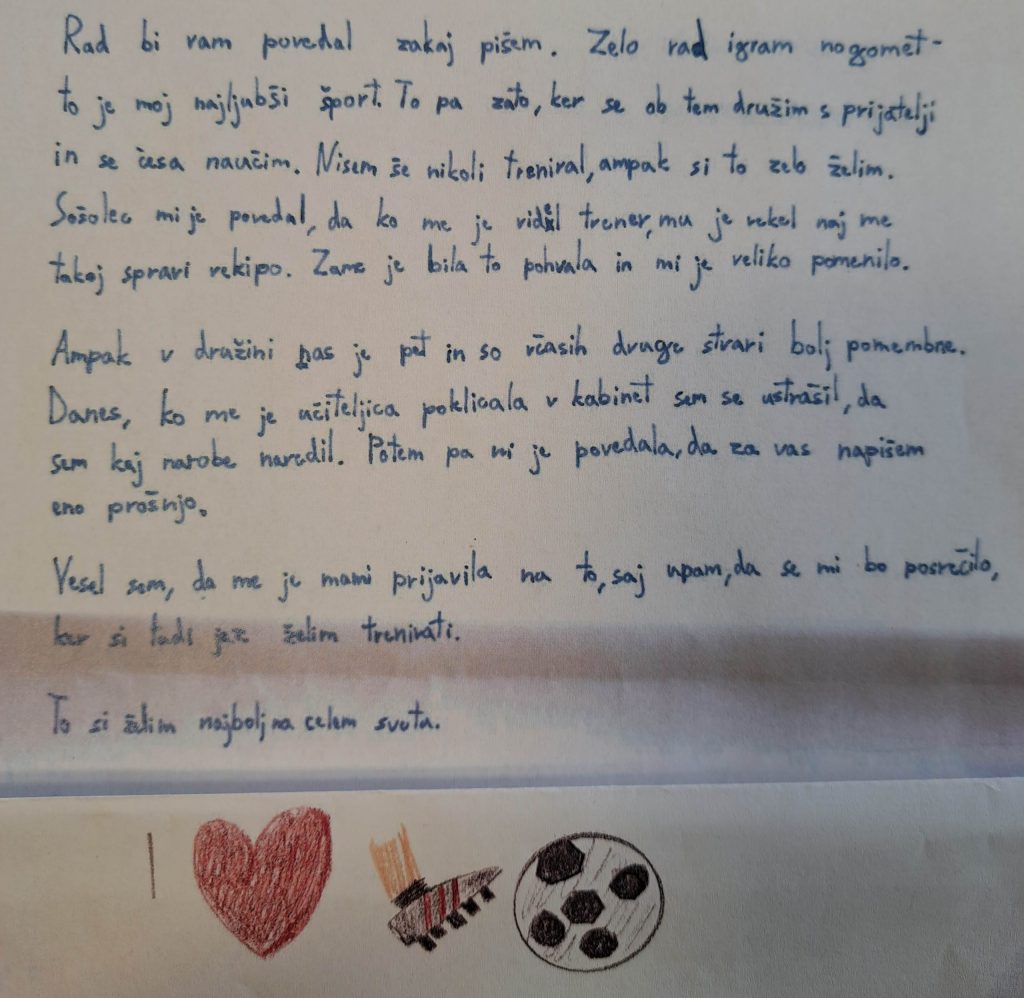 Rad bi vam povedal zakaj pišem. Zelo rad igram nogomet -
to je moj najljubši šport. To pa zato, ker se ob tem družim s prijatelji
in se česa naučim. Nisem še nikoli treniral, ampak si to zelo želim.
Sošolec mi je povedal, da ko me je videl trener, mu je rekel naj me
takoj spravi vekipo. Zame je bila to pohvala in mi je veliko pomenilo.
Ampak v družini nas je pet in so včasih druge stvari bolj pomembne.
Danes, ko me je učiteljica poklicala v kabinet sem se ustrašil, da
sem kaj narobe naredil. Potem pa mi je povedala, da za vas napišem
eno prošnjo.
Vesel sem, da me je mami prijavila na to, saj upam, da se mi bo posrečilo,
ker si tudi jaz želim trenirati.
To si želim najbolj na celem svetu.
I